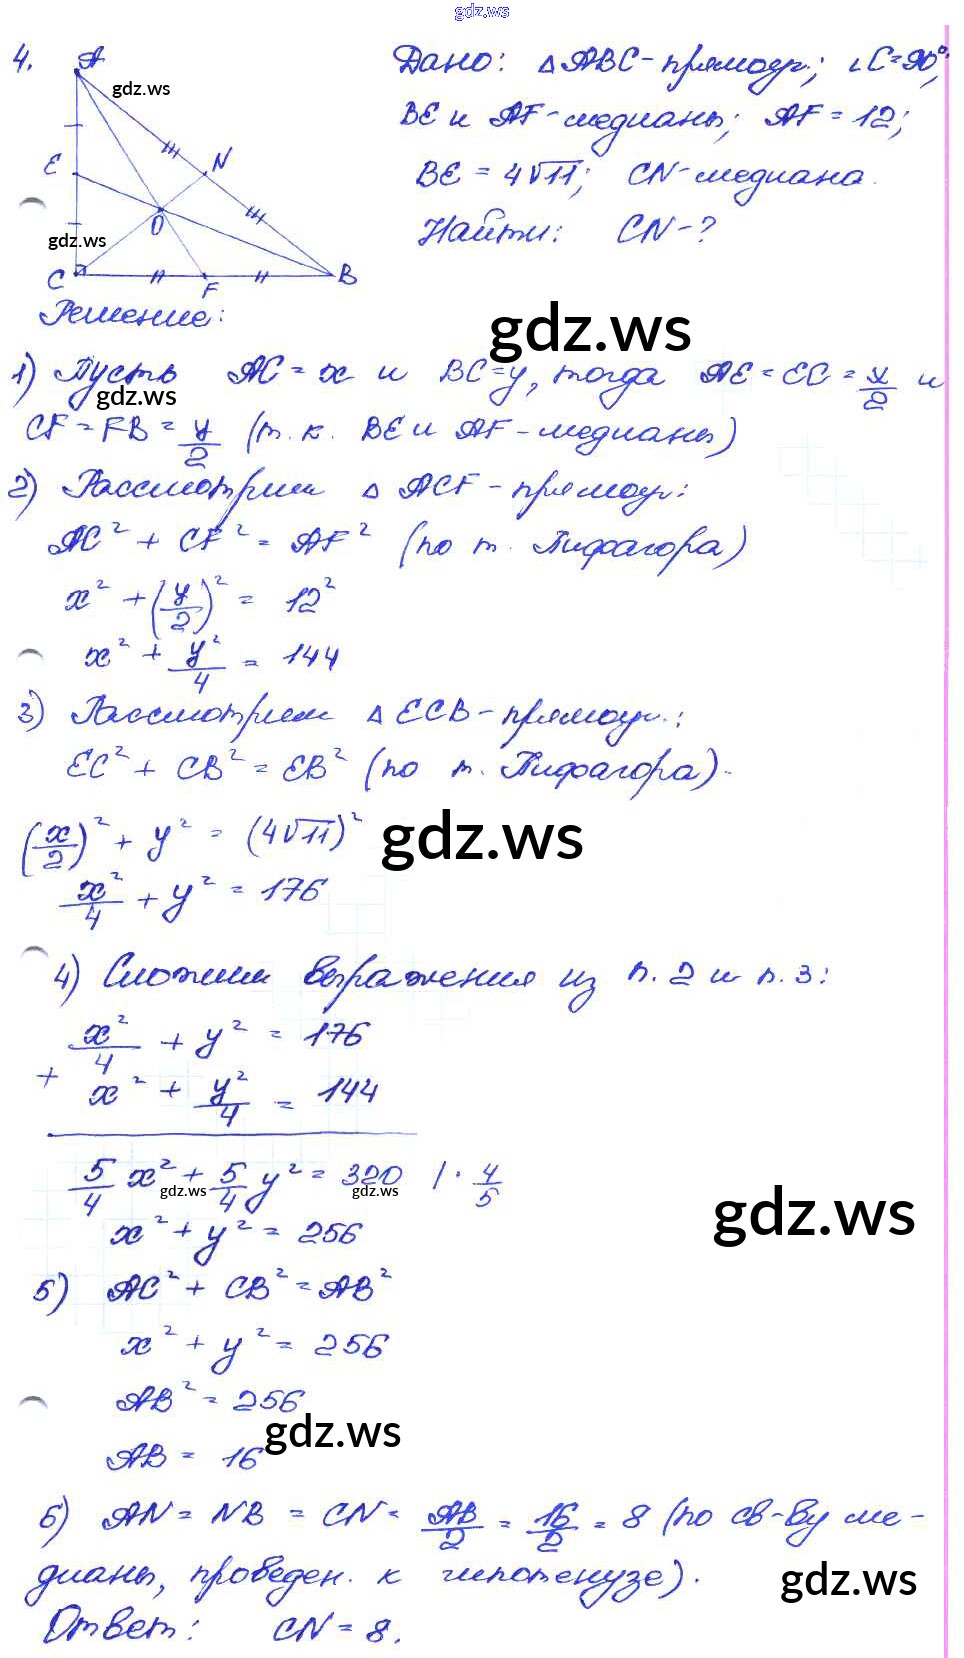 gdz.ws
4.
A
gdz.ws
E
N
O
gdz.ws
C
F
B
Дано: △ABC - прямоуг.; ∠C=90°;
BE и AF - медианы; AF = 12;
BE = 4√11; CN - медиана.
Найти: CN - ?
Решение:
gdz.ws
1) Пусть AC = x и BC = y, тогда AE = EC = x/2 и
gdz.ws
CF = FB = y/2 (т.к. BE и AF - медианы)
2) Рассмотрим △ ACF - прямоуг.:
AC² + CF² = AF² (по т. Пифагора)
x² + (y/2)² = 12²
x² + y²/4 = 144
3) Рассмотрим △ ECB - прямоуг.:
EC² + CB² = EB² (по т. Пифагора).
(x/2)² + y² = (4√11)²
gdz.ws
x²/4 + y² = 176
4) Сложим выражения из п. 2 и п. 3:
x²/4 + y² = 176
+
x² + y²/4 = 144
5/4 x² + 5/4 y² = 320 | · 4/5
gdz.ws gdz.ws
gdz.ws
x² + y² = 256
5) AC² + CB² = AB²
x² + y² = 256
AB² = 256
gdz.ws
AB = 16
6) AN = NB = CN = AB/2 = 16/2 = 8 (по св-ву ме-
дианы, проведен. к гипотенузе).
gdz.ws
Ответ: CN = 8.